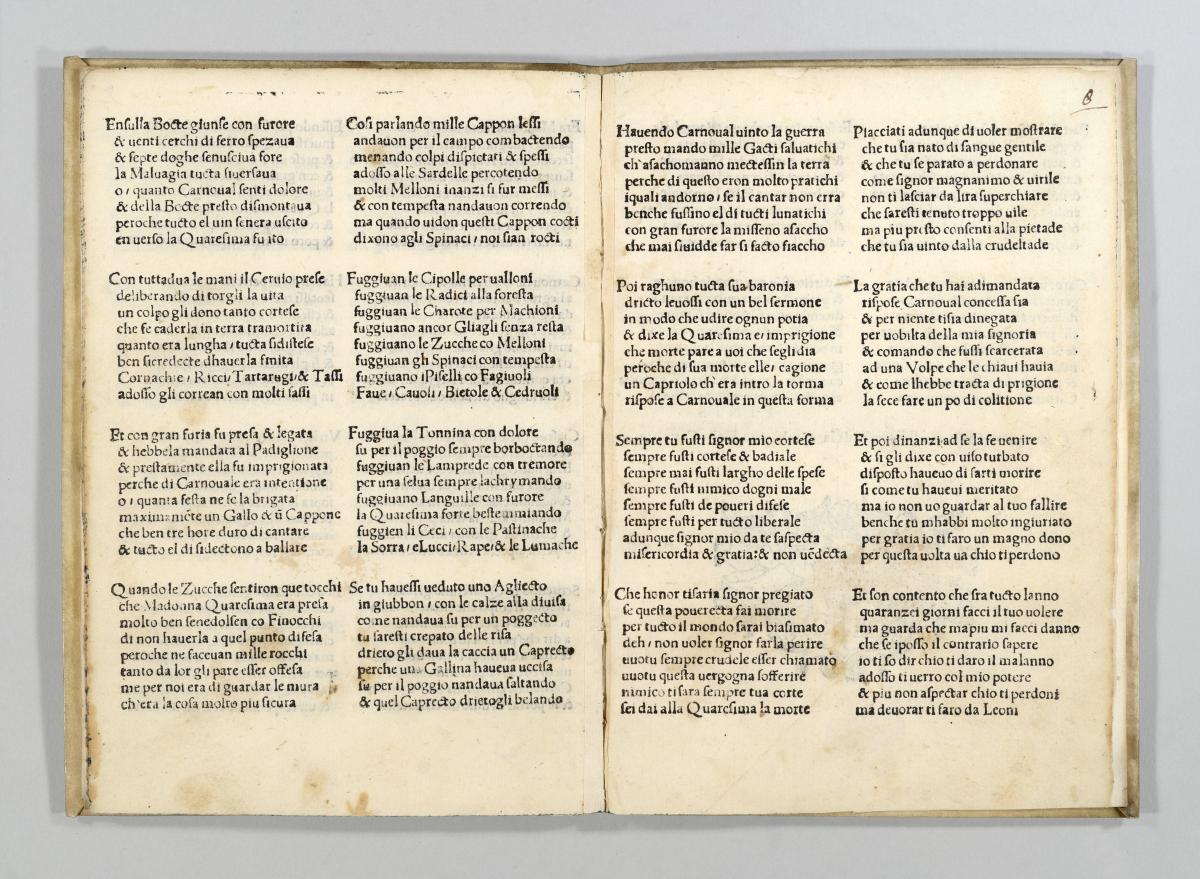 Ensulla Bocte giunse con furore
& uenti cerchi di ferro spezaua
& septe doghe senusciua fore
la Maluagia tucta siuersaua
o / quanto Carnoual senti dolore
& della Bocte presto dismontaua
peroche tucto el uin senera uscito
en uerso la Quaresima fu ito
Con tuttadua le mani il Ceruio prese
deliberando di torgli la uita
un colpo gli dono tanto cortese
che fe caderla in terra tramortita
quanto era lungha / tucta sidistese
ben sicredecte dhauerla finita
Cornachie / Ricci / Tartarugi / & Tassi
adosso gli correan con molti sassi
Et con gran furia fu presa & legata
& hebbela mandata al Padiglione
& prestamente ella fu imprigionata
perche di Carnouale era intentione
o / quanta festa ne fe la brigata
maximamēte un Gallo & ū Cappone
che ben tre hore duro di cantare
& tucto el di sidectono a ballare
Quando le Zucche sentiron que tocchi
che Madonna Quaresima era presa
molto ben senedolsen co Finocchi
di non hauerla a quel punto difesa
peroche ne faceuan mille rocchi
tanto da lor gli pare esser offesa
me per noi era di guardar le mura
ch'era la cosa molto piu sicura
Cosi parlando mille Cappon lessi
andauon per il campo combactendo
menando colpi dispietati & spessi
adosso alle Sardelle percotendo
molti Melloni inanzi si fur messi
& con tempesta nandauon correndo
ma quando uidon questi Cappon cocti
dixono agli Spinaci / noi sian rocti
Fuggiuan le Cipolle per ualloni
fuggiuan le Radici alla foresta
fuggiuan le Charote per Machioni
fuggiuano ancor Gliagli senza resta
fuggiuano le Zucche co Melloni
fuggiuan gli Spinaci con tempesta
fuggiuano i Piselli co Fagiuoli
Faue / Cauoli / Bietole & Cedruoli
Fuggiua la Tonnina con dolore
su per il poggio sempre borboctando
fuggiuan le Lamprede con tremore
per una selua sempre lachrymando
fuggiuano Languille con furore
la Quaresima forte bestemmiando
fuggien li Ceci / con le Pastinache
la Sorra / e Lucci / Rape / & le Lumache
Se tu hauessi ueduto uno Agliecto
in giubbon / con le calze alla diuisa
come nandaua su per un poggecto
tu saresti crepato delle risa
drieto gli daua la caccia un Caprecto
perche una Gallina haueua uccisa
su per il poggio nandaua saltando
& quel Caprecto drietogli belando
8
Hauendo Carnoual uinto la guerra
presto mando mille Gacti saluatichi
ch'asachomanno mectessin la terra
perche di questo eron molto pratichi
iquali andorno / se il cantar non erra
benche fussino el di tucti lunatichi
con gran furore la misseno asaccho
che mai siuidde far si facto fiaccho
Poi raghuno tucta sua baronia
dricto leuossi con un bel sermone
in modo che udire ognun potia
& dixe la Quaresima e / imprigione
che morte pare a uoi che segli dia
peroche di sua morte elle / cagione
un Capriolo ch'era intro la torma
rispose a Carnouale in questa forma
Sempre tu fusti signor mio cortese
sempre fusti cortese & badiale
sempre mai fusti largho delle spese
sempre fusti nimico dogni male
sempre fusti de poueri difese
sempre fusti per tucto liberale
adunque signor mio da te saspecta
misericordia & gratia: & non uēdecta
Che honor tisaria signor pregiato
se questa pouerecta fai morire
per tucto il mondo sarai biasimato
deh / non uoler signor farla perire
uuotu sempre crudele esser chiamato
uuotu questa uergogna sofferire
nimico ti sara sempre tua corte
sei dai alla Quaresima la morte
Piacciati adunque di uoler mostrare
che tu sia nato di sangue gentile
& che tu se parato a perdonare
come signor magnanimo & uirile
non ti lasciar da lira superchiare
che saresti tenuto troppo uile
ma piu presto consenti alla pietade
che tu sia uinto dalla crudeltade
La gratia che tu hai adimandata
rispose Carnoual concessa sia
& per niente tisia dinegata
per uobilta della mia signoria
& comando che fussi scarcerata
ad una Volpe che le chiaui hauia
& come lhebbe tracta di prigione
la fece fare un po di colitione
Et poi dinanzi ad se la fe uenire
& si gli dixe con uiso turbato
disposto haueuo di farti morire
si come tu haueui meritato
ma io non uo guardar al tuo fallire
benche tu mhabbi molto ingiuriato
per gratia io ti faro un magno dono
per questa uolta ua chio ti perdono
Et son contento che fra tucto lanno
quaranzei giorni facci il tuo uolere
ma guarda che mapiu mi facci danno
che se iposso il contrario sapere
io ti so dir chio ti daro il malanno
adosso ti uerro col mio potere
& piu non aspectar chio ti perdoni
ma deuorar ti faro da Leoni